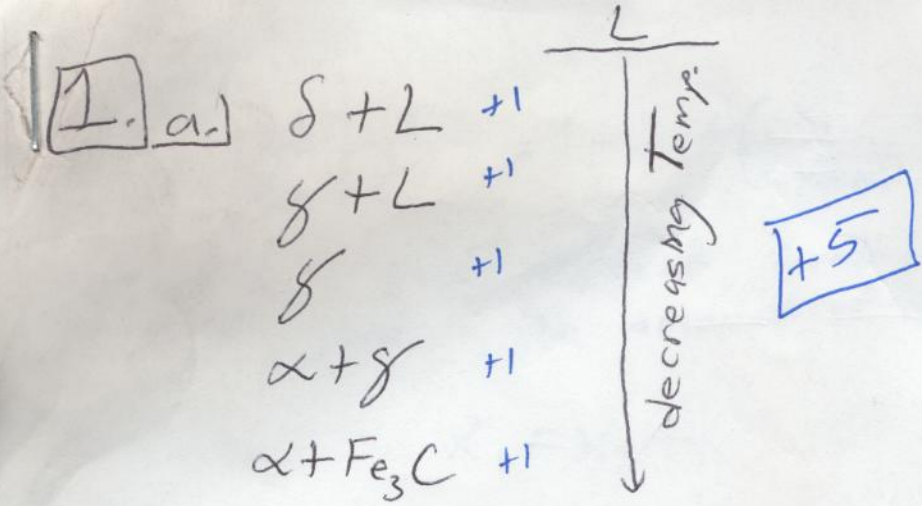 L
1. a.) δ + L +1
γ + L +1
γ +1
α + γ +1
α + Fe₃C +1
decreasing Temp.
+5